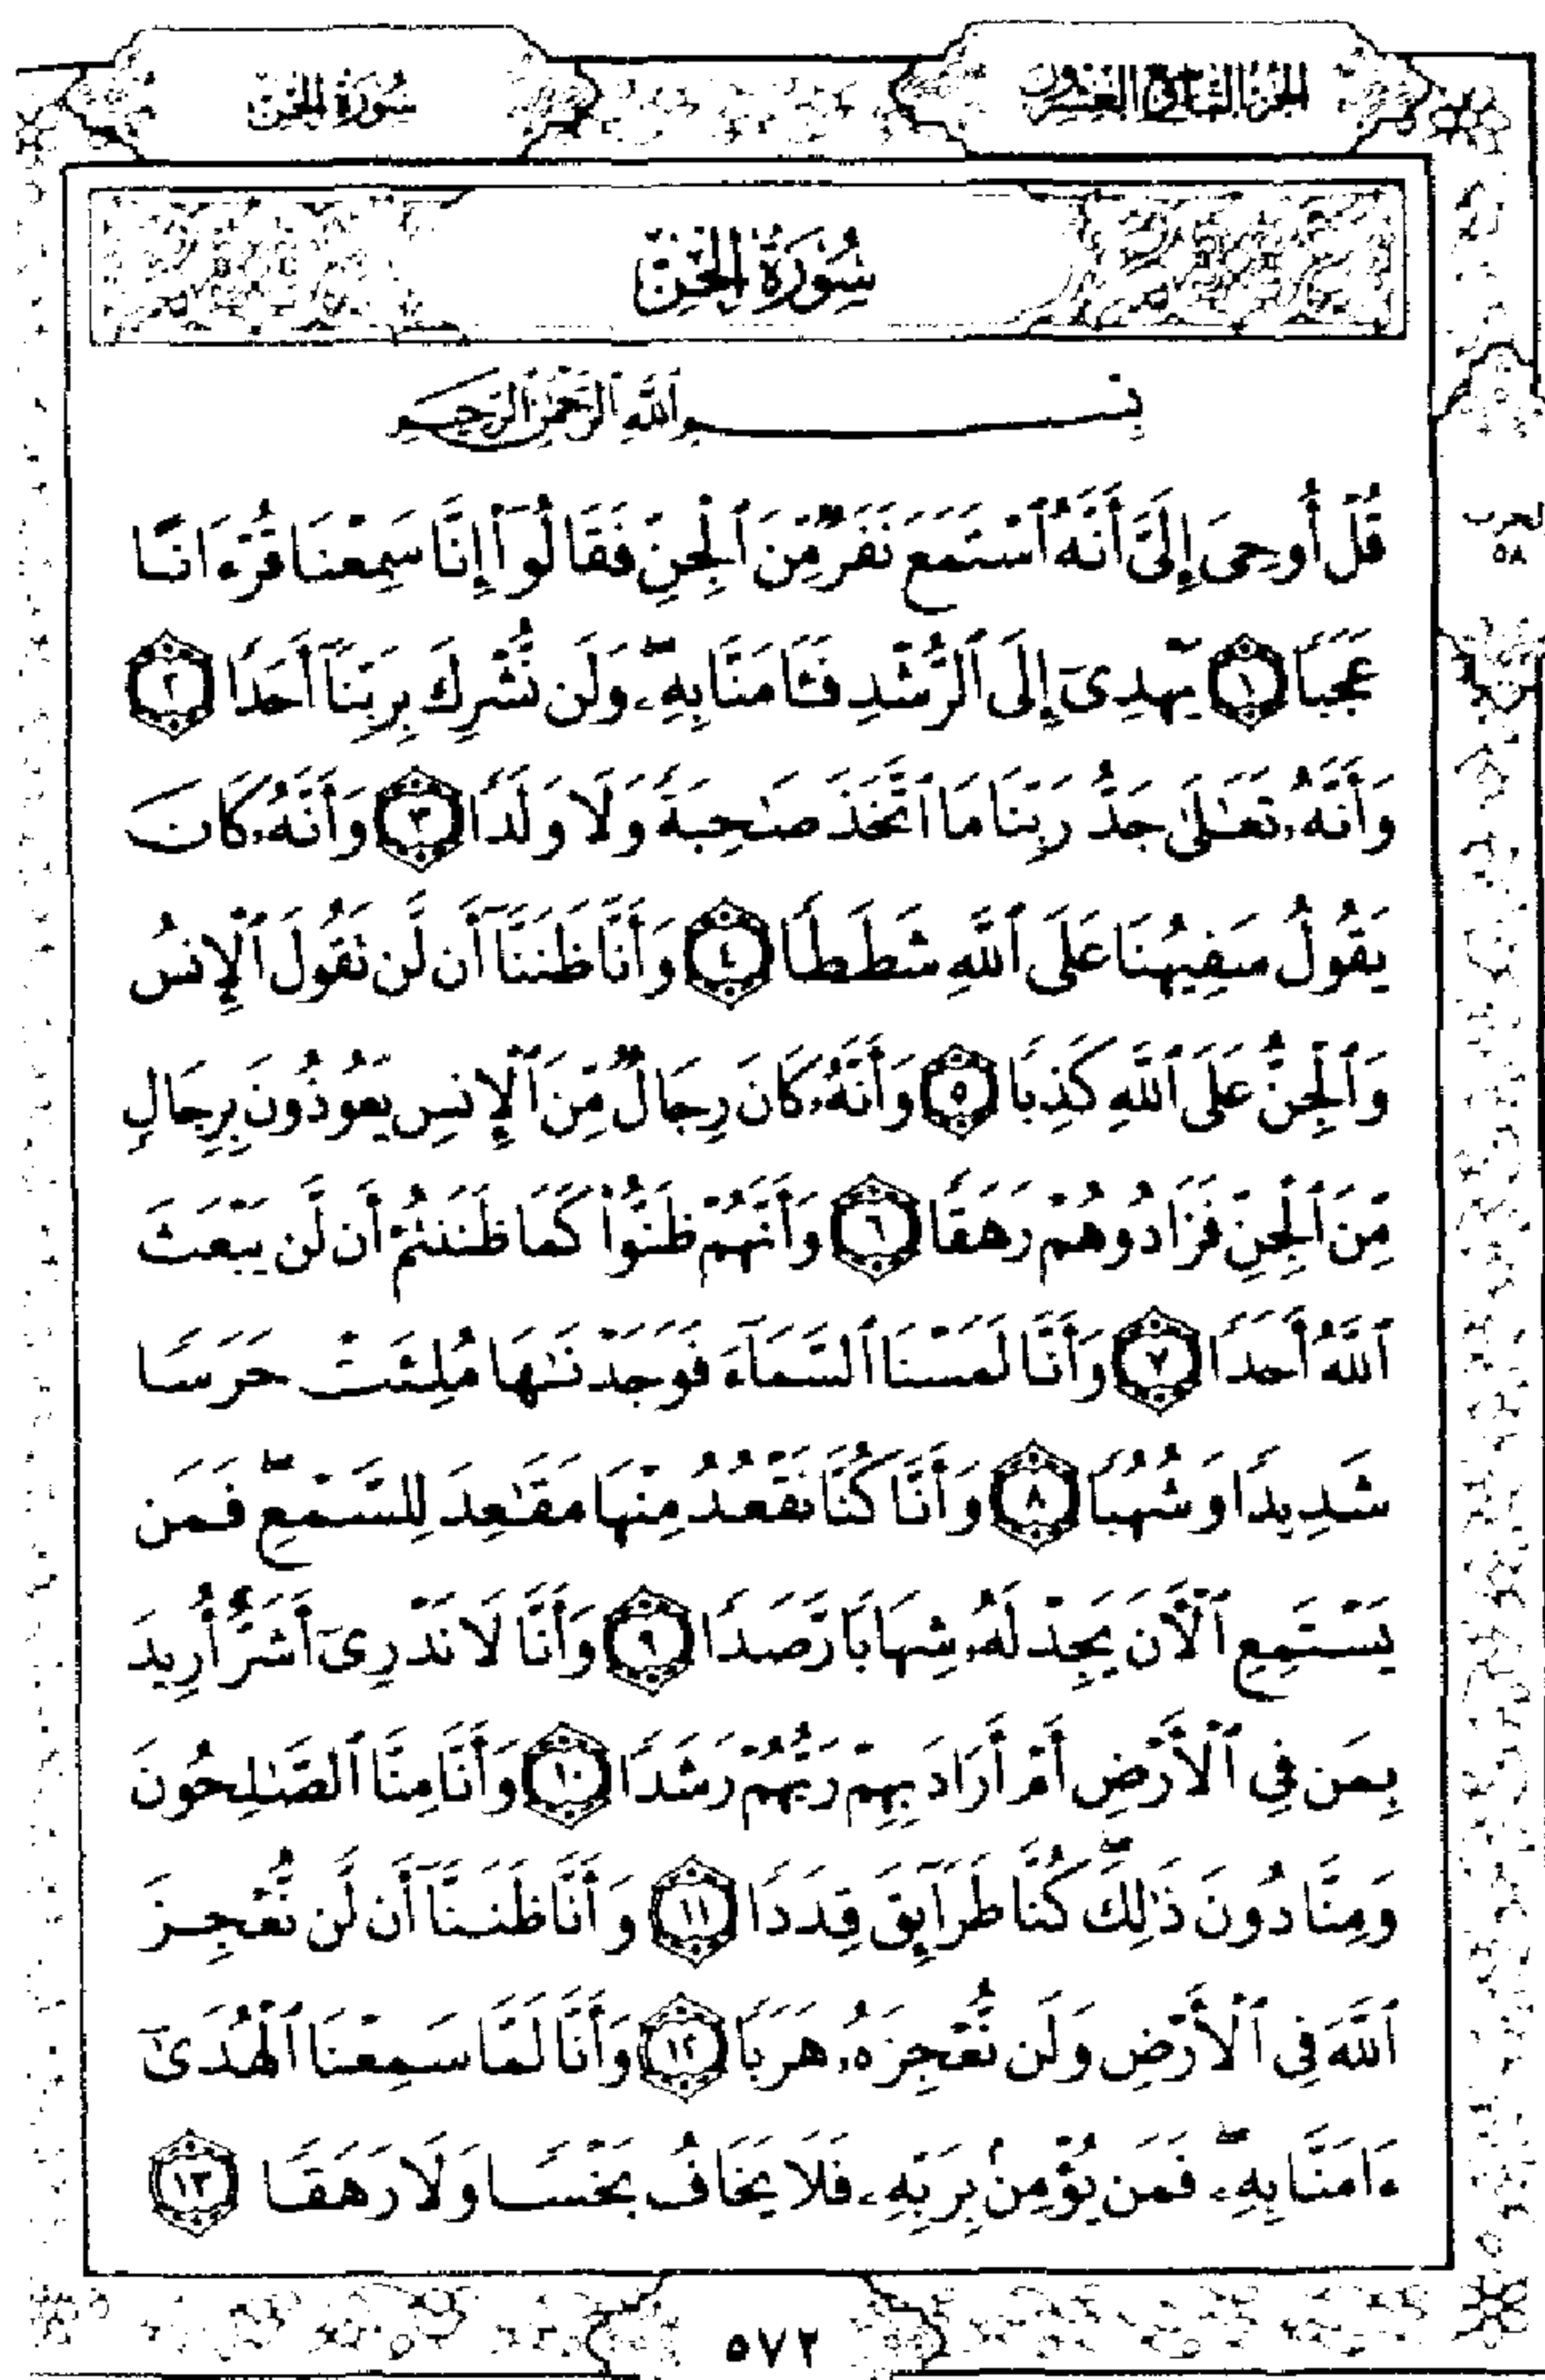 الجزء التاسع والعشرون
سورة الجن
سُورَةُ الجِنّ
بِسْمِ ٱللَّهِ ٱلرَّحْمَٰنِ ٱلرَّحِيمِ
قُلْ أُوحِىَ إِلَىَّ أَنَّهُ ٱسْتَمَعَ نَفَرٌ مِّنَ ٱلْجِنِّ فَقَالُوٓا۟ إِنَّا سَمِعْنَا قُرْءَانًا
عَجَبًا ١ يَهْدِىٓ إِلَى ٱلرُّشْدِ فَـَٔامَنَّا بِهِۦۖ وَلَن نُّشْرِكَ بِرَبِّنَآ أَحَدًا ٢
وَأَنَّهُۥ تَعَٰلَىٰ جَدُّ رَبِّنَا مَا ٱتَّخَذَ صَٰحِبَةً وَلَا وَلَدًا ٣ وَأَنَّهُۥ كَانَ
يَقُولُ سَفِيهُنَا عَلَى ٱللَّهِ شَطَطًا ٤ وَأَنَّا ظَنَنَّآ أَن لَّن تَقُولَ ٱلْإِنسُ
وَٱلْجِنُّ عَلَى ٱللَّهِ كَذِبًا ٥ وَأَنَّهُۥ كَانَ رِجَالٌ مِّنَ ٱلْإِنسِ يَعُوذُونَ بِرِجَالٍ
مِّنَ ٱلْجِنِّ فَزَادُوهُمْ رَهَقًا ٦ وَأَنَّهُمْ ظَنُّوا۟ كَمَا ظَنَنتُمْ أَن لَّن يَبْعَثَ
ٱللَّهُ أَحَدًا ٧ وَأَنَّا لَمَسْنَا ٱلسَّمَآءَ فَوَجَدْنَٰهَا مُلِئَتْ حَرَسًا
شَدِيدًا وَشُهُبًا ٨ وَأَنَّا كُنَّا نَقْعُدُ مِنْهَا مَقَٰعِدَ لِلسَّمْعِۖ فَمَن
يَسْتَمِعِ ٱلْـَٔانَ يَجِدْ لَهُۥ شِهَابًا رَّصَدًا ٩ وَأَنَّا لَا نَدْرِىٓ أَشَرٌّ أُرِيدَ
بِمَن فِى ٱلْأَرْضِ أَمْ أَرَادَ بِهِمْ رَبُّهُمْ رَشَدًا ١٠ وَأَنَّا مِنَّا ٱلصَّٰلِحُونَ
وَمِنَّا دُونَ ذَٰلِكَۖ كُنَّا طَرَآئِقَ قِدَدًا ١١ وَأَنَّا ظَنَنَّآ أَن لَّن نُّعْجِزَ
ٱللَّهَ فِى ٱلْأَرْضِ وَلَن نُّعْجِزَهُۥ هَرَبًا ١٢ وَأَنَّا لَمَّا سَمِعْنَا ٱلْهُدَىٰٓ
ءَامَنَّا بِهِۦۖ فَمَن يُؤْمِنۢ بِرَبِّهِۦ فَلَا يَخَافُ بَخْسًا وَلَا رَهَقًا ١٣
٥٧٢